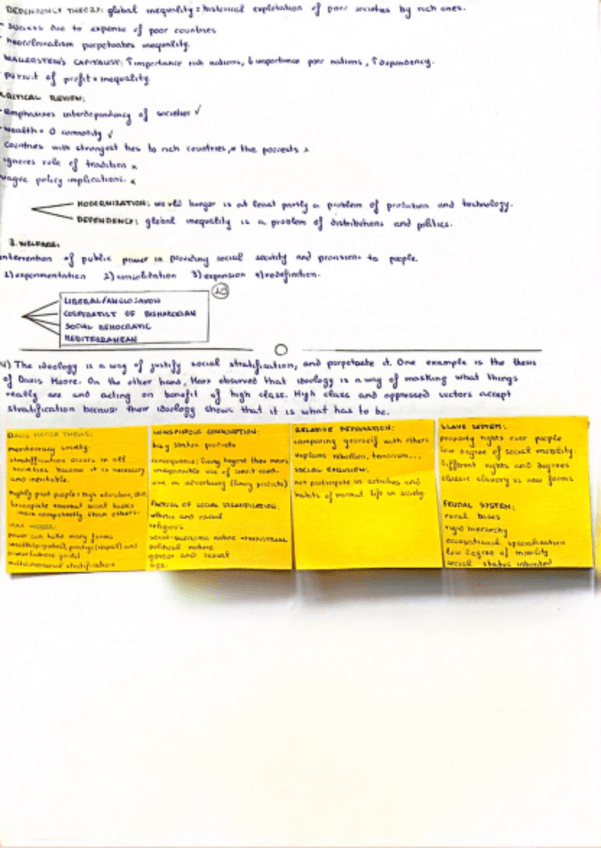 DEPENDENCY THEORY: global inequality = historical exploitation of poor societies by rich ones.
success due to expense of poor countries
neocolonialism perpetuates inequality.
WALLERSTEIN'S CAPITALIST: ↑ importance rich nations, ↓ importance poor nations, ↑ dependency.
Pursuit of profit = inequality.
CRITICAL REVIEW:
Emphasises interdependency of societies ✓
Wealth = 0 commodity ✓
Countries with strongest ties to rich countries, ≠ the poorests x
Ignores role of tradition x
Vague policy implications. x
MODERNISATION: world hunger is at least partly a problem of production and technology.
DEPENDENCY: global inequality is a problem of distributions and politics.
3. WELFARE:
Intervention of public power in providing social security and provisions to people.
1) experimentation 2) consolidation 3) expansion 4) redefinition.
LIBERAL/ANGLOSAXON
COOPERATIST OF BISMARCKIAN
SOCIAL DEMOCRATIC
MEDITERRANEAN
4) The ideology is a way of justify social stratification, and perpetuate it. One example is the thesis
of Davis Moore. On the other hand, Marx observed that ideology is a way of masking what things
really are and acting on benefit of high class. High class and oppressed sectors accept
stratification because their ideology shows that it is what has to be.
DAVIS MOORE THESIS:
meritocracy society.
stratification occurs in all
societies because it is necessary
and inevitable.
more competently than others.
MAX WEBER:
power can take many forms
multidimensional stratification
CONSPICUOUS CONSUMPTION:
buy status products
consequence: living beyond their means
irresponsible use of credit cards.
use in advertising (luxury products)
FACTORS OF SOCIAL STRATIFICATION:
ethnic and racial
religious
political nature
gender and sexual
age.
RELATIVE DEPRIVATION:
comparing yourself with others
explains rebellion, terrorism...
SOCIAL EXCLUSION:
not participate in activities and
habits of normal life in society.
SLAVE SYSTEM:
property rights over people
low degree of social mobility.
different rights and degrees
classic slavery vs new forms
FEUDAL SYSTEM:
rural basis
rigid hierarchy
occupational specialisation
low degree of mobility
social status inherited